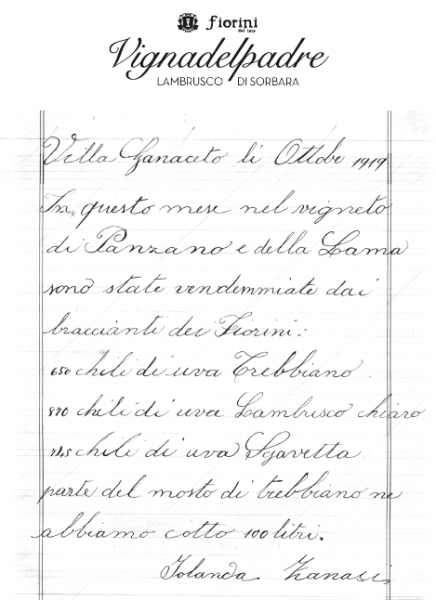 fiorini
dal 1919
Vignadelpadre
LAMBRUSCO DI SORBARA
Villa Ganaceto li Ottobe 1919
In questo mese nel vigneto
di Panzano e della Lama
sono state vendemmiate dai
braccianti dei Fiorini:
650 chili di uva Trebbiano
870 chili di uva Lambrusco chiaro
chili di uva Sgavetta
parte del mosto di trebbiano ne
abbiamo cotto 100 litri.
Iolanda Zanasi